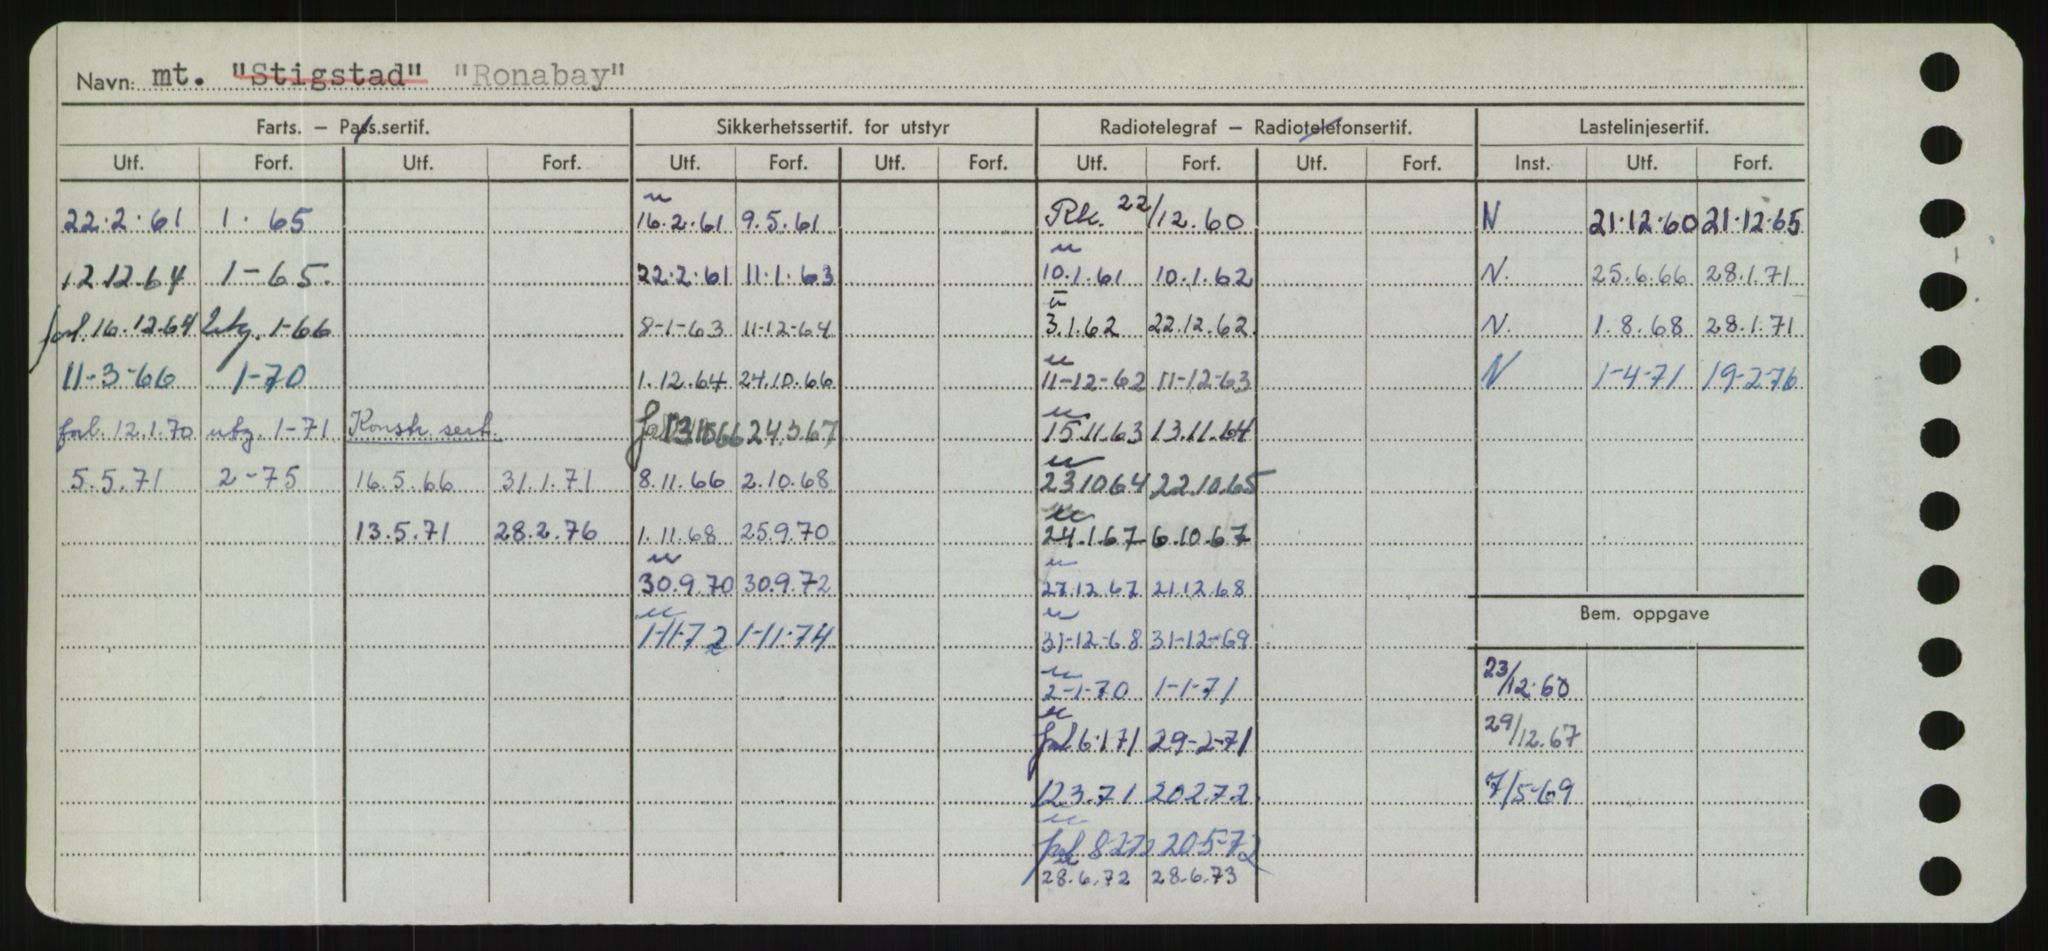 Navn: mt. "Stigstad" "Ronabay"
Farts. – Pass.sertif. Sikkerhetssertif. for utstyr Radiotelegraf – Radiotelefonsertif. Lastelinjesertif.
Utf. Forf. Utf. Forf. Utf. Forf. Utf. Forf. Utf. Forf. Utf. Forf. Inst. Utf. Forf.
22.2.61 1. 65 16.2.61 9.5.61 Rk. 22/12.60 N 21.12.60 21.12.65
12.12.64 1-65. 22.2.61 11.1.63 10.1.61 10.1.62 N. 25.6.66 28.1.71
forl. 16.12.64 utg. 1-66 8-1-63 11-12-64 3.1.62 22.12.62. N. 1.8.68 28.1.71
11-3-66 1-70 1.12.64 24.10.66 11-12-62 11-12-63 N 1-4-71 19-2-76
forl. 12.1.70 utg. 1-71 Konstr. sert. 15.11.63 13.11.64
5.5.71 2-75 16.5.66 31.1.71 8.11.66 2.10.68 23.10.64 22.10.65
13.5.71 28.2.76 1.11.68 25.9.70 24.1.67 6.10.67
30.9.70 30.9.72 27.12.67 21.12.68
Bem. oppgave
1-11-72 1-11-74 31-12-68 31-12-69
2-1-70 1-1-71 23/12.60
forl 6.1.71 29-2-71 29/12.67
12.3.71 20.2.72 7/5-69
20.5.72
28.6.72 28.6.73